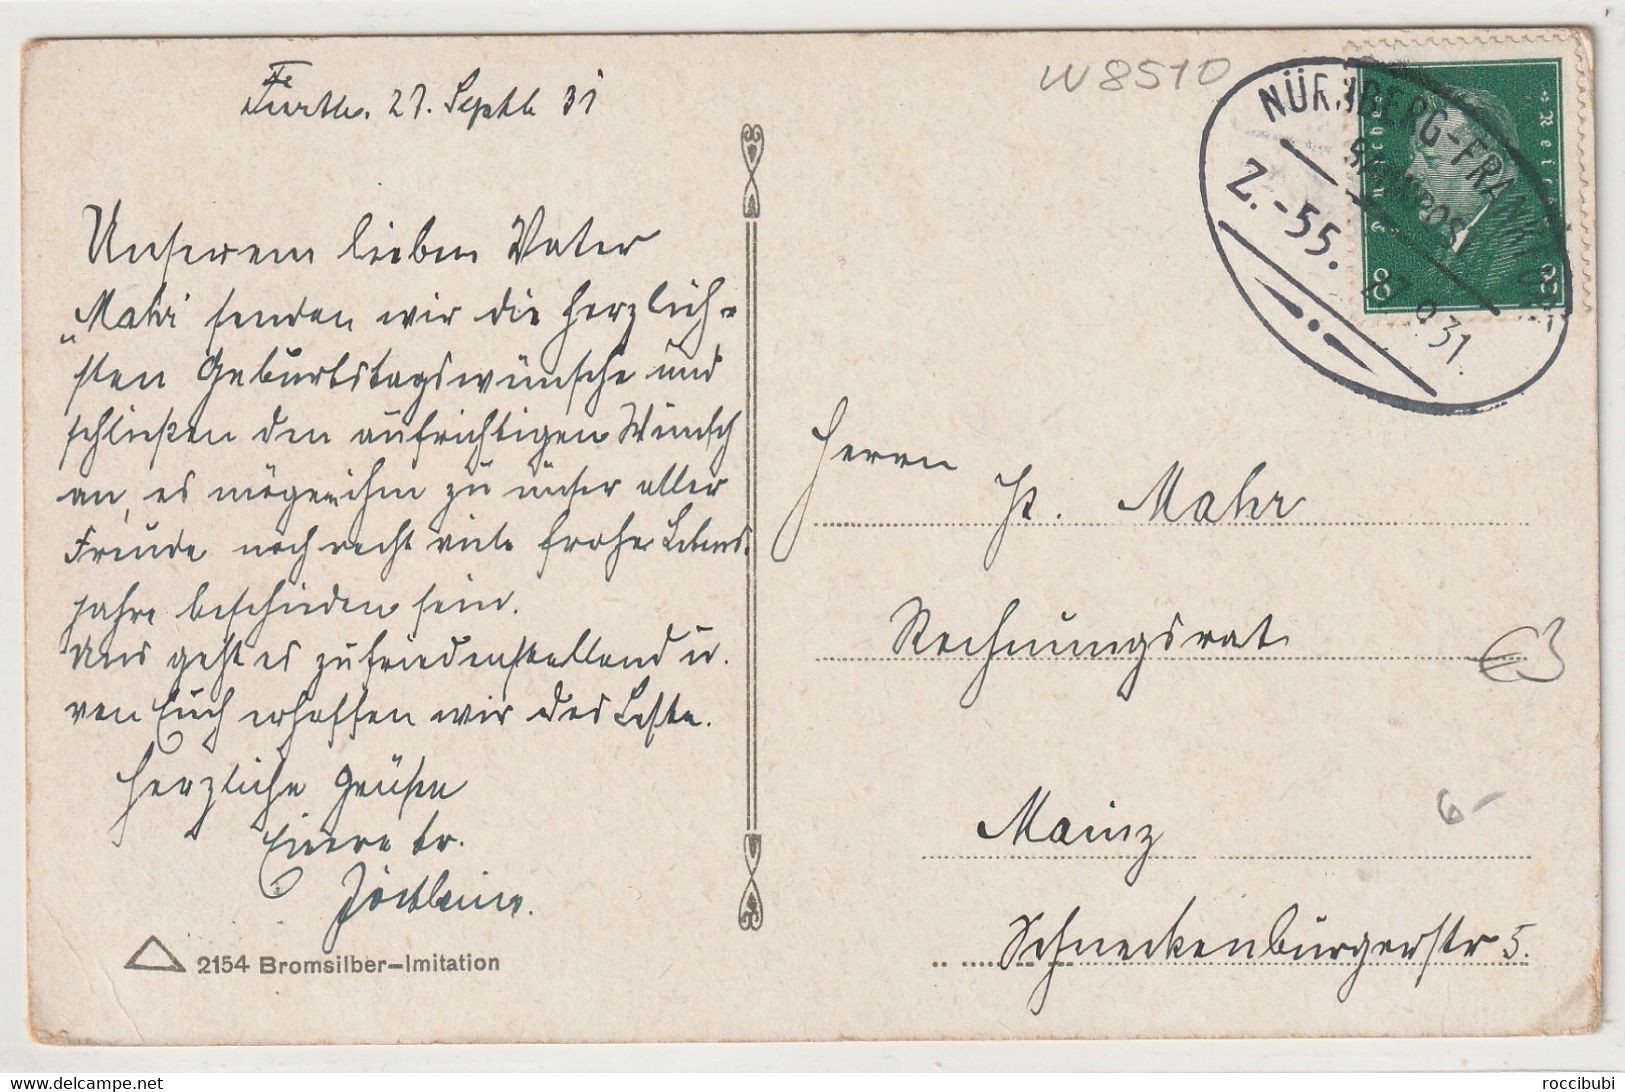 Fürth, 27. Septb 31
Unserem lieben Vater
"Mahr" senden wir die herzlich-
sten Geburtstagswünsche und
schließen den aufrichtigen Wunsch
an, es mögen ihm zu unser aller
Freude noch recht viele frohe Lebens-
jahre beschieden sein.
Uns geht es zufriedenstellend u.
von Euch erhoffen wir das Beste.
Herzliche Grüße
Eure tr.
2154 Bromsilber-Imitation
W8510
NÜRNBERG-FRANKFURT
BAHNPOST
Z.-55. 27 9 31.
Deutsches Reich
8 8
Herrn
H. Mahr
Rechnungsrat
€3
Mainz
6-
Schneckenburgerstr 5.
delcampe.net
roccibubi